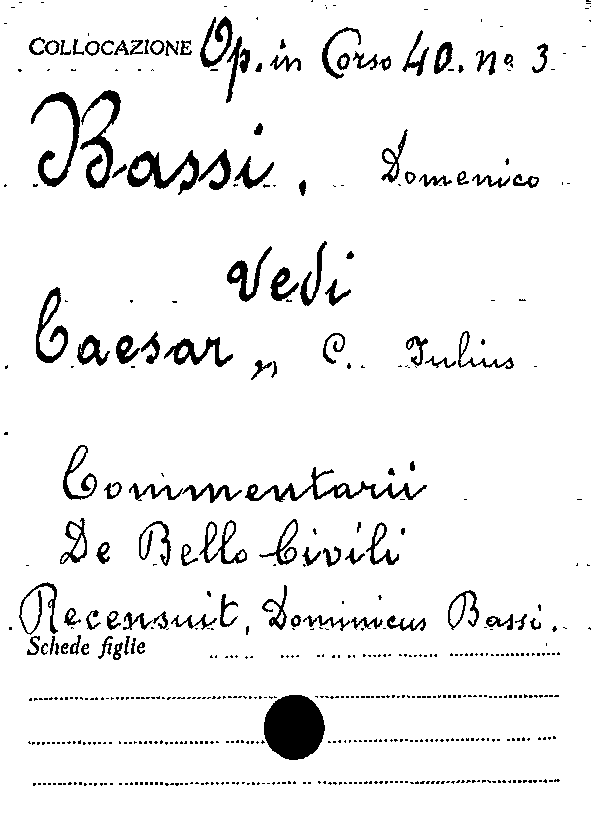 COLLOCAZIONE Op. in Corso 40. nº 3
Bassi, Domenico
Vedi
Caesar, C. Iulius
Commentarii
De Bello Civili
Recensuit, Dominicus Bassi.
Schede figlie